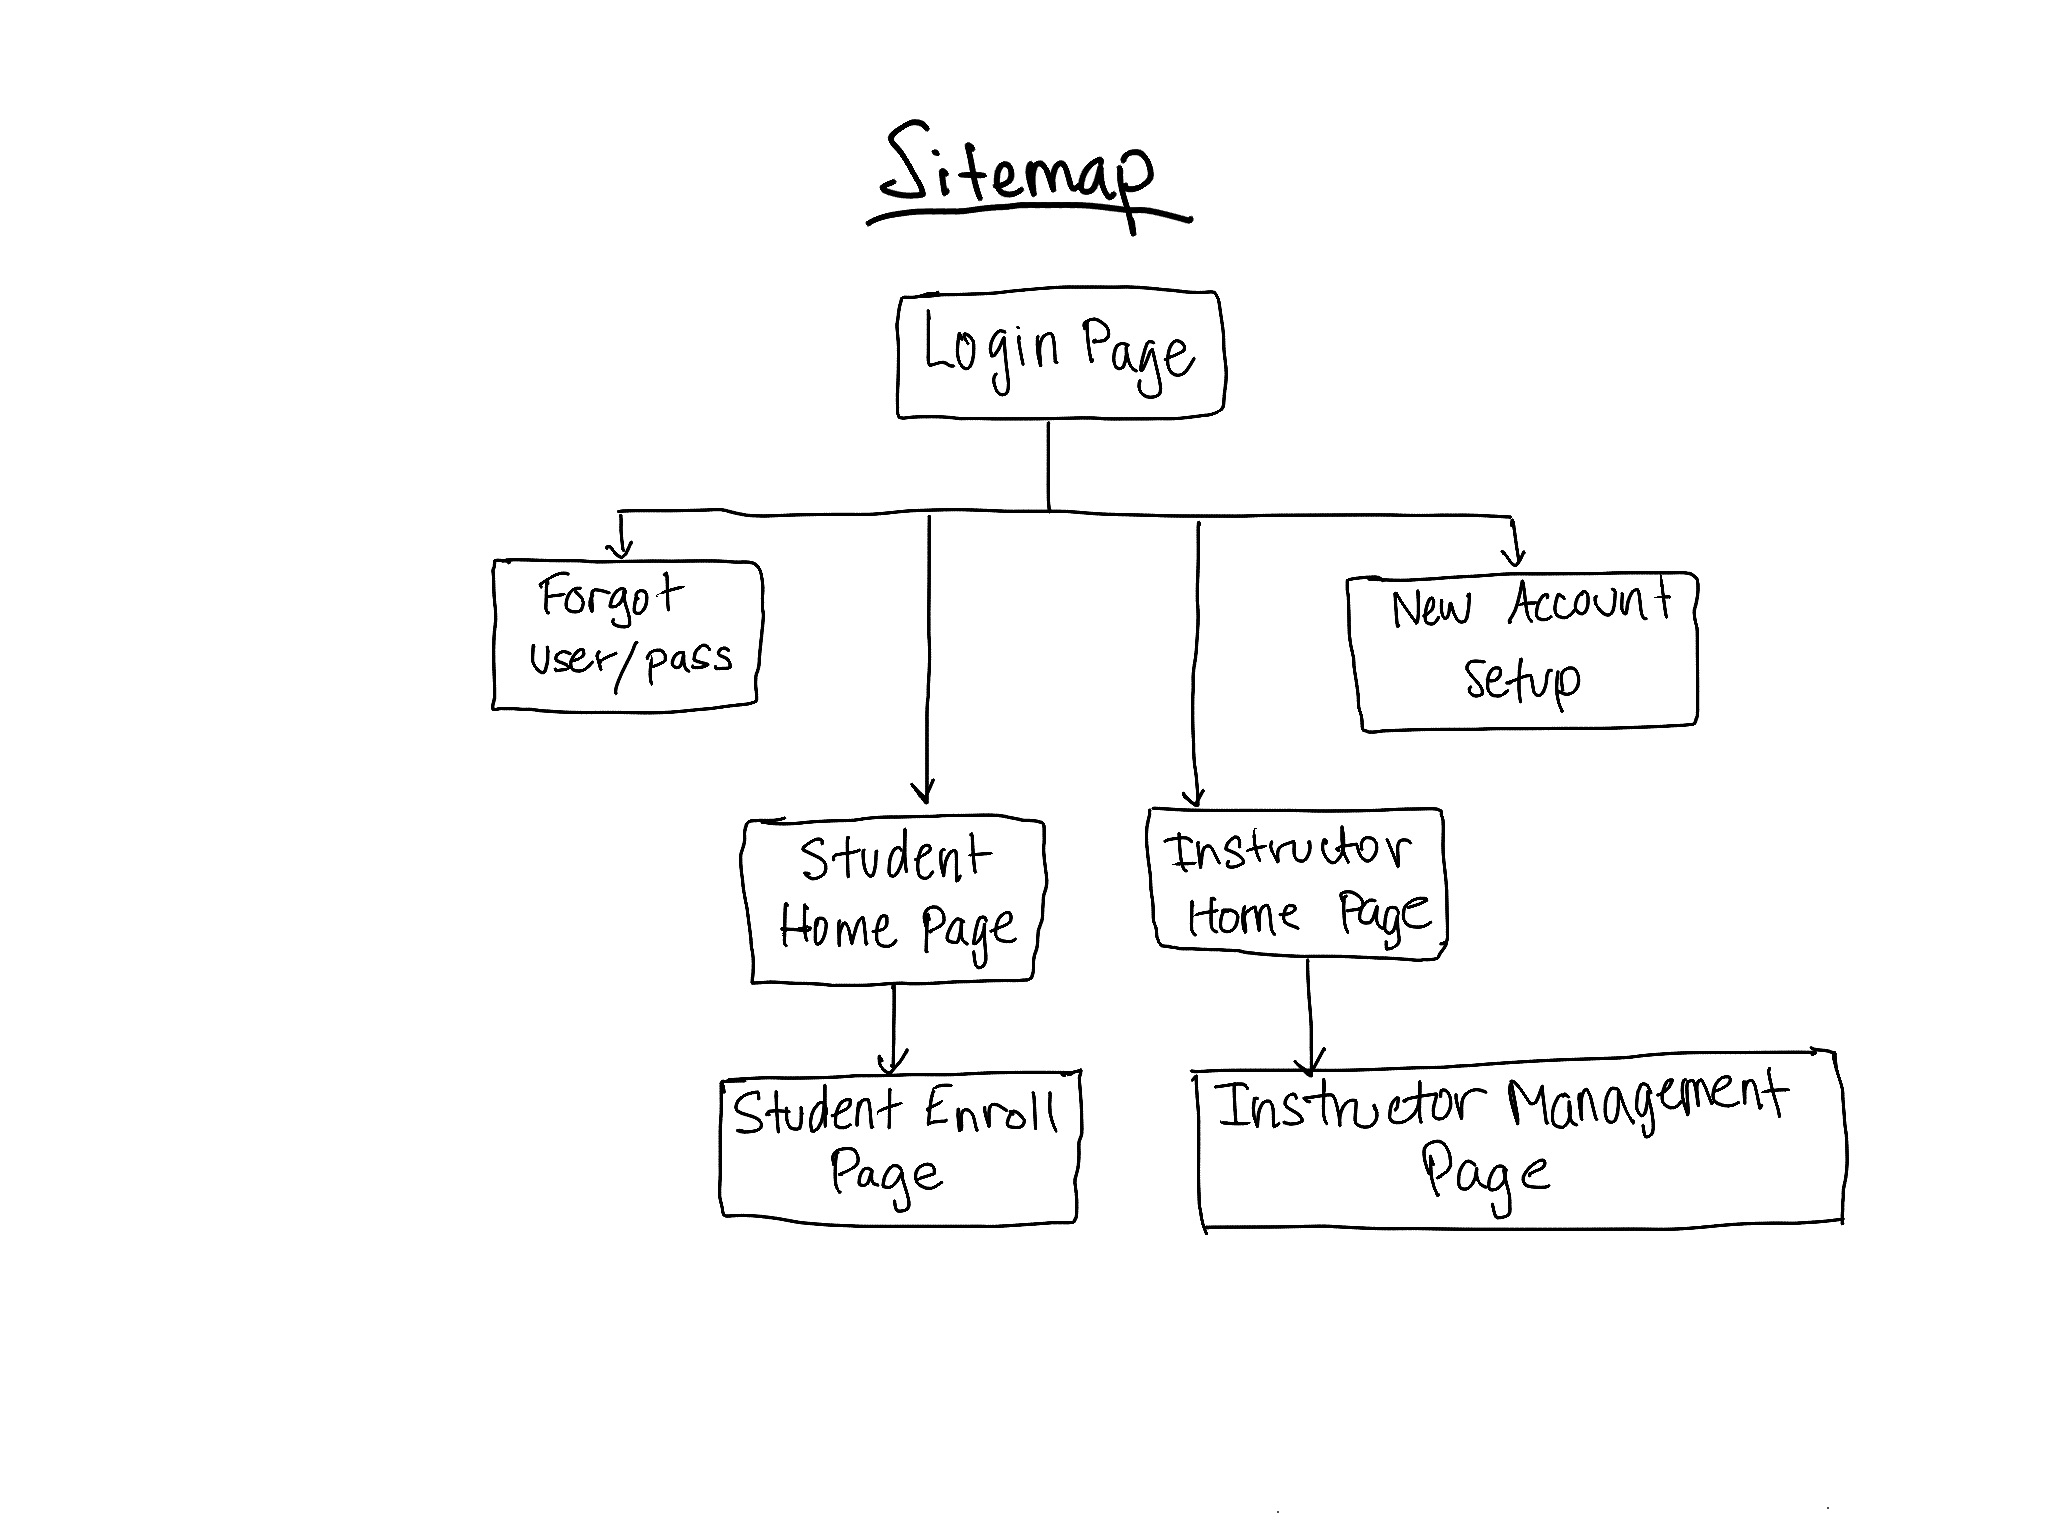 Sitemap
Login Page
Forgot
user/pass
New Account
Setup
Student
Home Page
Instructor
Home Page
Student Enroll
Page
Instructor Management
Page